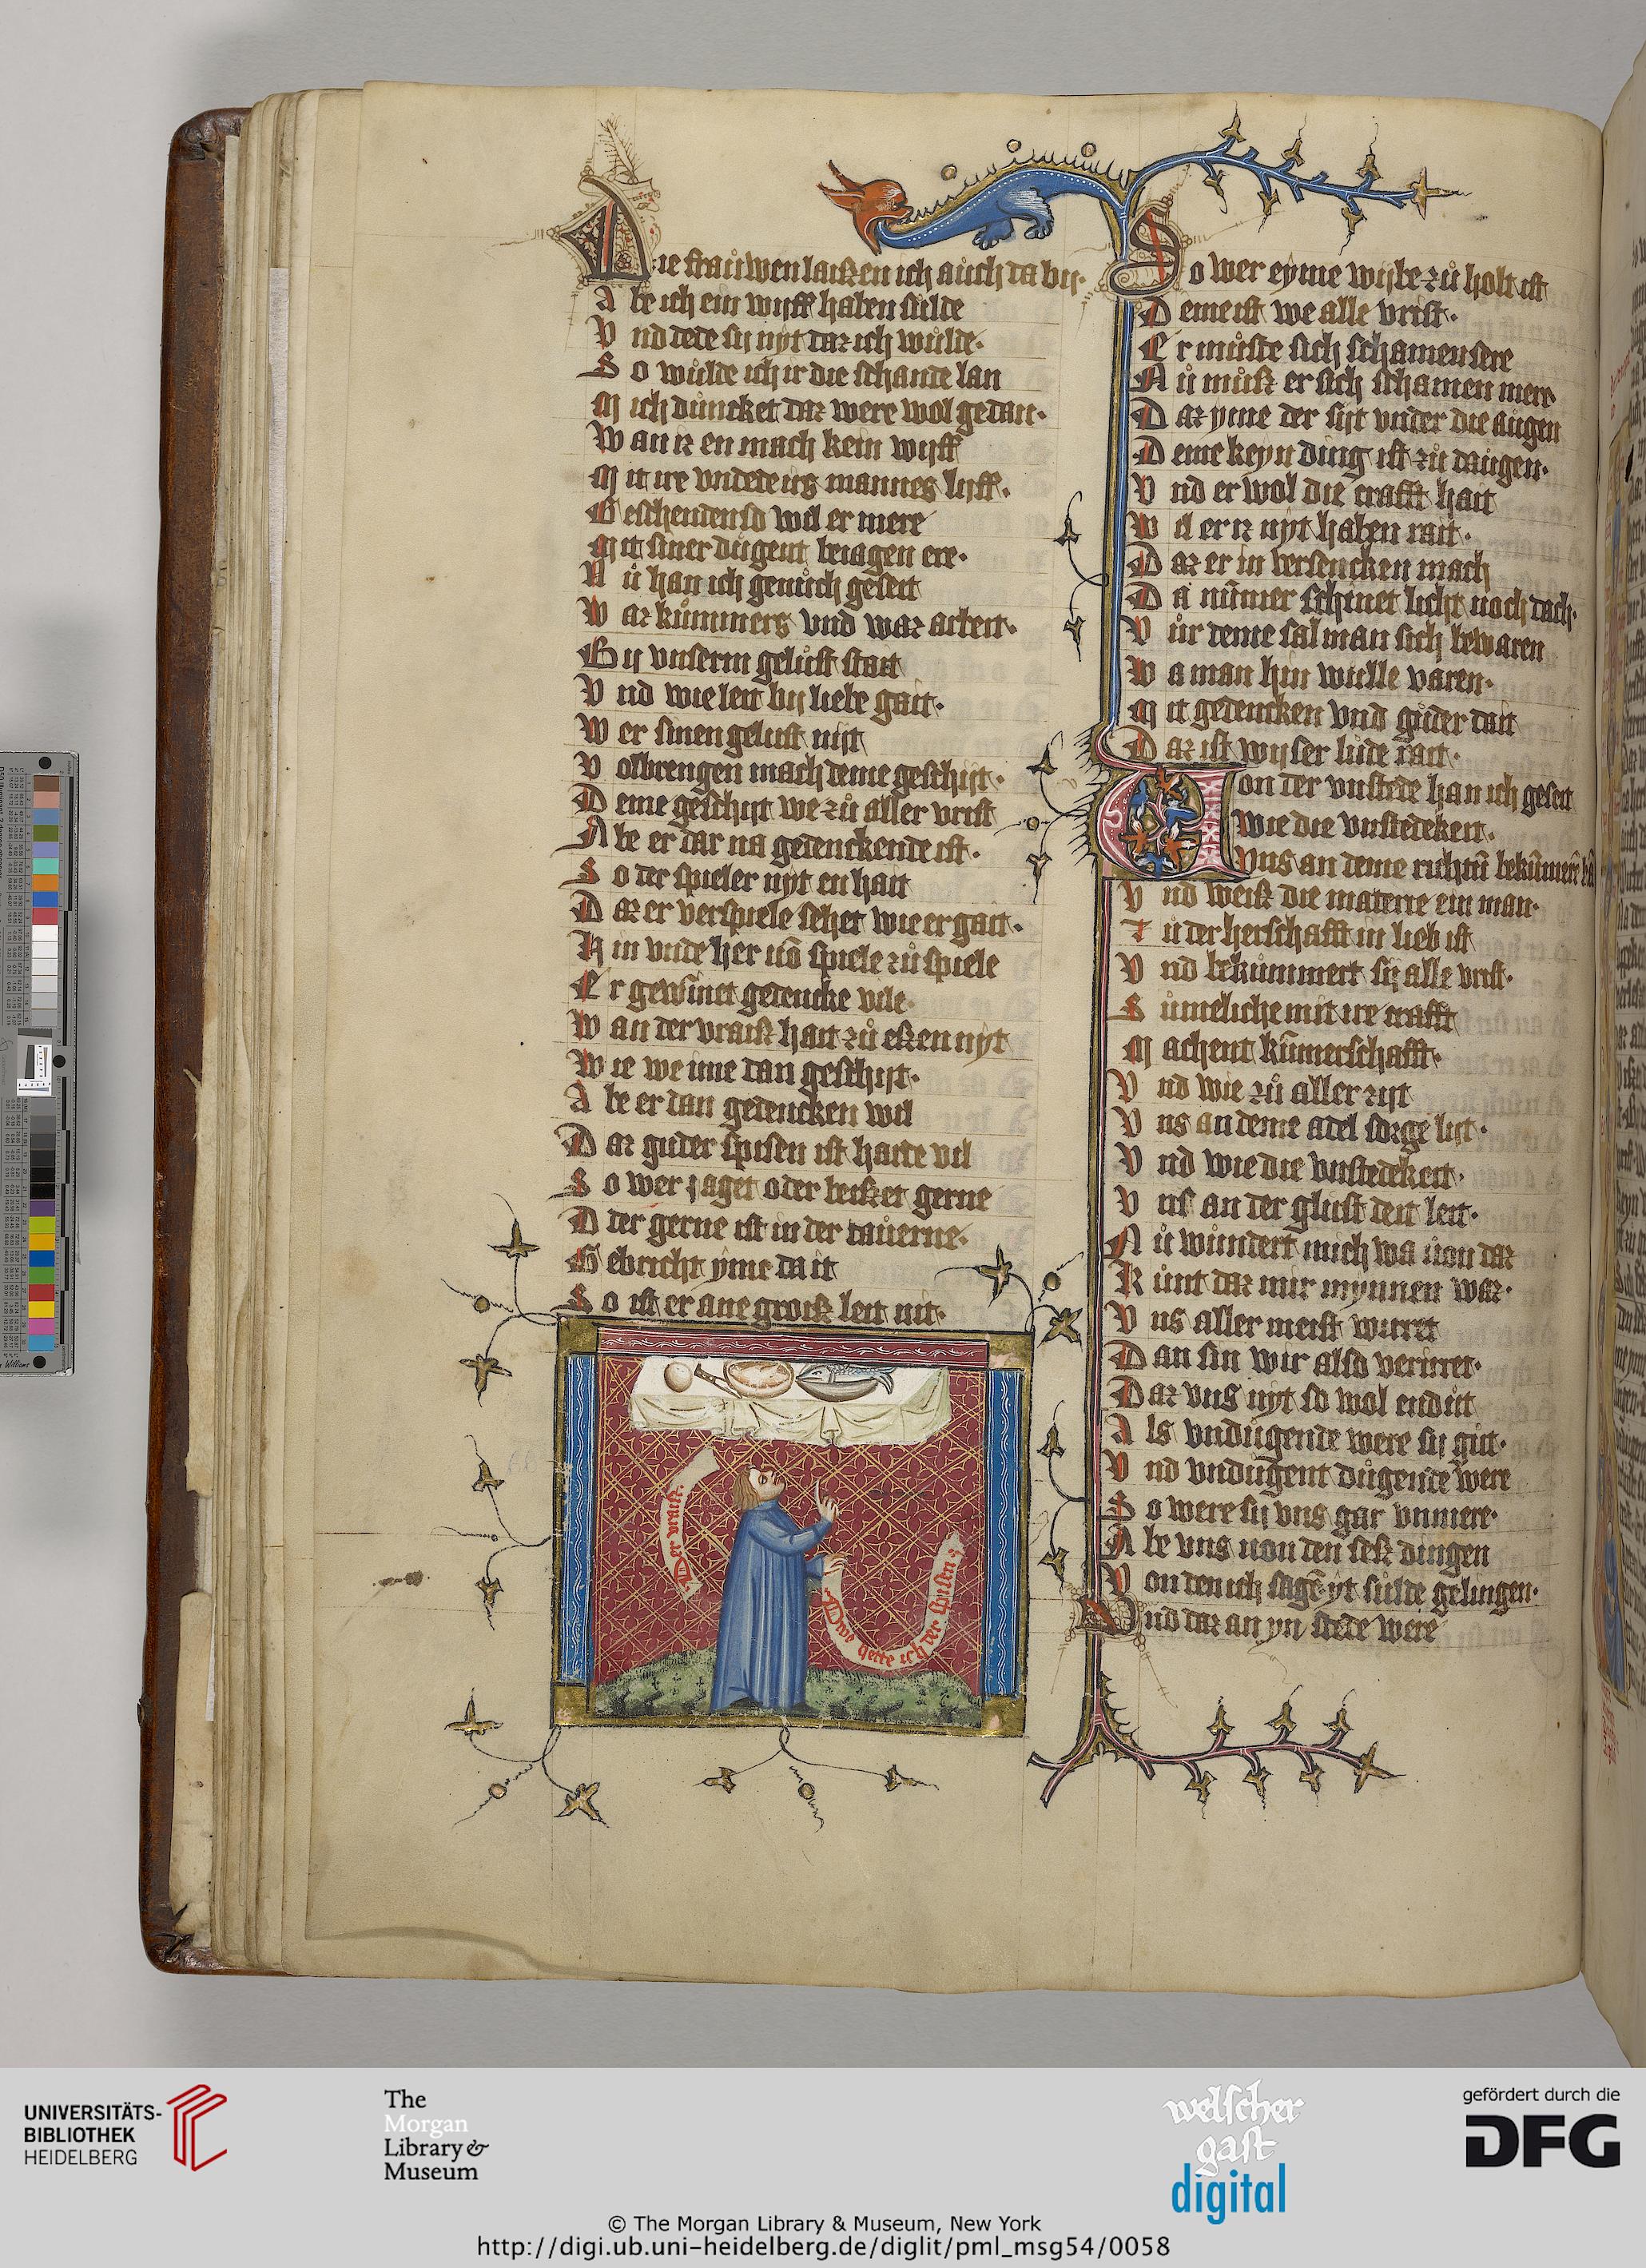 Die frauwen laißen ich auch da bij·
Abe ich ein wijff haben sulde
Vnd dede sij nyt daz ich wůlde·
So wůlde ich ir die schande lan
Mich důncket daz were wol gedan·
Wan iz en mach kein wijff
Mit ire vndedens mannes lijff·
Geschenden so wil er mere
Mit siner důgent beiagen ere·
Nů han ich genůch geseit
Waz kůmmers vnd waz arbeit·
Bij vnserm gelůst stait
Vnd wie leit bij liebe gait·
Wer sinen gelust nijt
Volbrengen mach deme geschijt·
Deme geschijt we zů aller vrist
Abe er dar na gedenckende ist·
So der spieler nyt en hait
Daz er verspiele sehet wie er gait·
Hin vnde her uō spiele zů spiele
Er gewinet gedencke vile·
Wan der vraiß hait zů eßen nyt
Wie we ime dan geschijt·
Abe er dan gedencken wil
Daz guder spisen ist harte vil
So wer jaget oder beißet gerne
Oder gerne ist in der tauerne·
Gebricht yme da it
So ist er ane groiß leit nit·
Der vraiß·
Owe hette ich der spisen·
So wer eyme wijbe zů holt ist
Deme ist we alle vrist·
Er můste sich schamen sere
Nů můß er sich schamen mere
Daz yme der sijt vnder die augen
Deme keyn ding ist zů daugen·
Vnd er wol die crafft hait
Wil er iz nyt haben rait·
Daz er in versencken mach
Da nům̄er schinet licht noch dach·
Vůr deme sal man sich bewaren
Wa man hin wulle varen·
Mit gedencken vnd gůder dait
Daz ist wijser lude rait·
Von der vnstede han ich geseit
Wie die vnstedekeit·
Vns an deme richtū bekůmerē kā
Vnd weiß die materie ein man·
Tů der herschafft in lieb ist
Vnd bekummert sij alle vrist·
Sůmeliche mit ire crafft
Machent kům̄erschafft·
Vnd wie zů aller zijt
Vns an deme adel sorge lijt·
Vnd wie die vnstedekeit·
Vns an der glust deit leit·
Nů wůndert mich wa uon daz
Kůnt daz mir mynnen waz·
Vns aller meist wirret
Dan sin wir also verirret·
Daz vns nyt so wol endůt
Als vndůgende were sij gůt·
Vnd vndůgent důgende were
So were sij vns gar vnmere·
Abe vns uon den seß dingen
Von den ich sagē yt sulde gelingen·
Vnd daz an yn stede were
UNIVERSITÄTS-
BIBLIOTHEK
HEIDELBERG
The
Morgan
Library &
Museum
welscher
gast
digital
gefördert durch die
DFG
© The Morgan Library & Museum, New York
http://digi.ub.uni-heidelberg.de/diglit/pml_msg54/0058